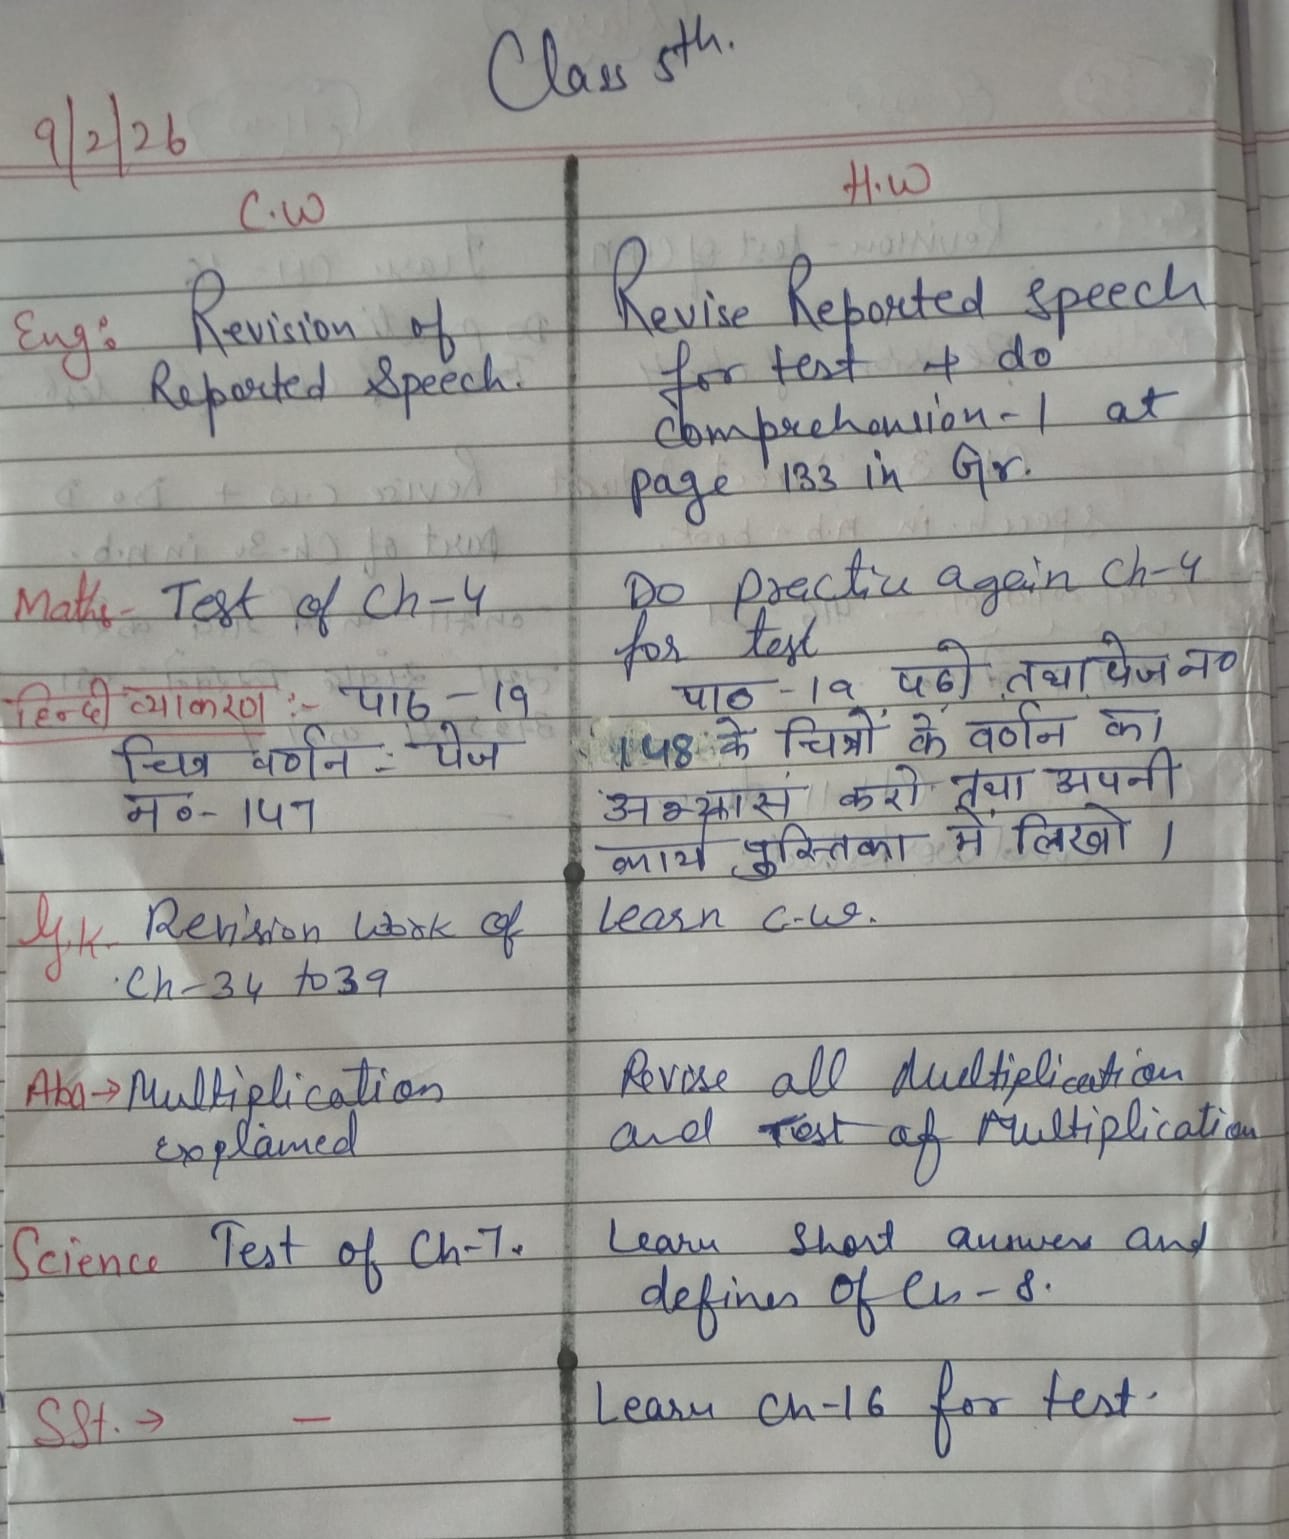 Class 5th.
9/2/26
C.W
H.W
Eng: Revision of
Reported Speech.
Revise Reported speech
for test & do
comprehension-1 at
page 133 in Gr.
Maths- Test of Ch-4
Do practice again Ch-4
for test
हिन्दी व्याकरण :- पाठ - 19
चित्र वर्णन :- पेज
न०- 147
पाठ -19 पढो तथा पेज न०
148 के चित्रों के वर्णन का
अभ्यास करो तथा अपनी
कार्य पुस्तिका में लिखो ।
G.K. Revision work of
Ch-34 to 39
Learn C.W.
Aba→ Multiplication
explained
Revise all Multiplication
and Test of Multiplication
Science Test of Ch-7.
Learn short answers and
defines of Ch-8.
SSt. → -
Learn Ch-16 for test.